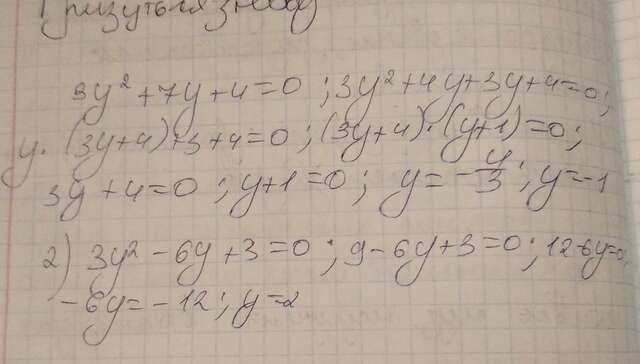 3y² + 7y + 4 = 0 ; 3y² + 4y + 3y + 4 = 0 ;
y · (3y + 4) + 3 + 4 = 0 ; (3y + 4) · (y + 1) = 0 ;
3y + 4 = 0 ; y + 1 = 0 ; y = -4/3 ; y = -1
2) 3y² - 6y + 3 = 0 ; 9 - 6y + 3 = 0 ; 12 - 6y = 0 ;
- 6y = - 12 ; y = 2